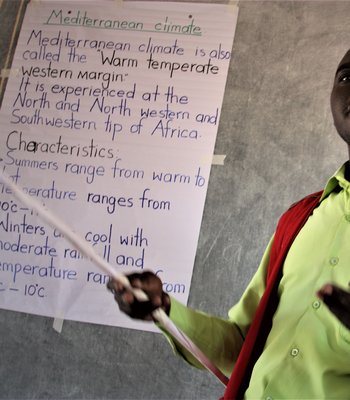 Mediterranean climate
Mediterranean climate is also
called the "Warm temperate
western margin."
It is experienced at the
North and North western and
Southwestern tip of Africa.
Characteristics:
Summers range from warm to
temperature ranges from
Winters are cool with
moderate rainfall and
temperature ranges from
- 10°c